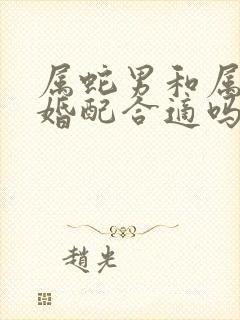 属蛇男和属
婚配合适吗
趙光